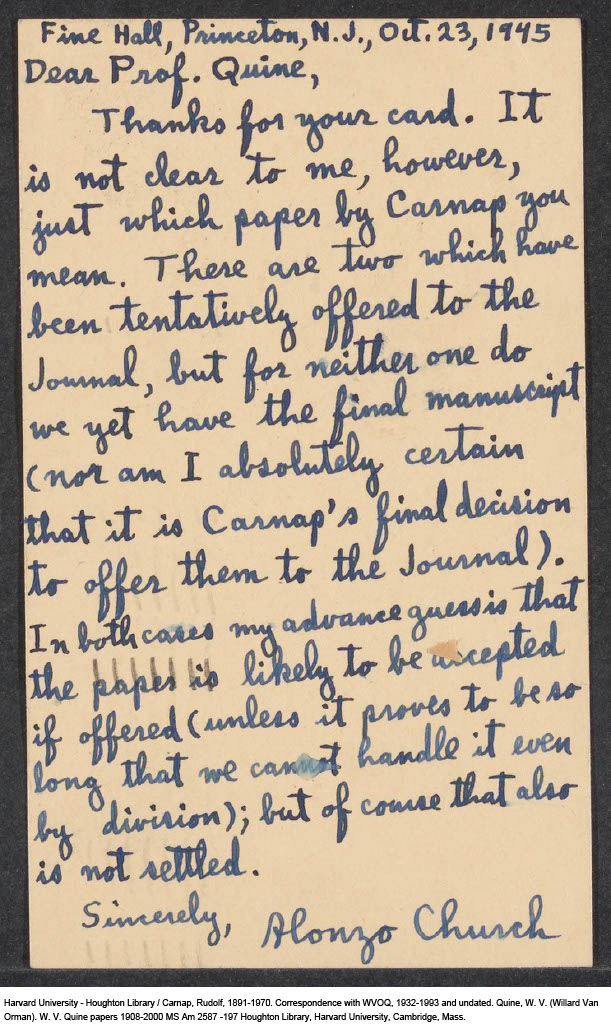 Fine Hall, Princeton, N.J., Oct. 23, 1945
Dear Prof. Quine,
Thanks for your card. It
is not clear to me, however,
just which paper by Carnap you
mean. There are two which have
been tentatively offered to the
Journal, but for neither one do
we yet have the final manuscript
(nor am I absolutely certain
that it is Carnap's final decision
to offer them to the Journal).
In both cases my advance guess is that
the paper is likely to be accepted
if offered (unless it proves to be so
long that we cannot handle it even
by division); but of course that also
is not settled.
Sincerely, Alonzo Church
Harvard University - Houghton Library / Carnap, Rudolf, 1891-1970. Correspondence with WVOQ, 1932-1993 and undated. Quine, W. V. (Willard Van
Orman). W. V. Quine papers 1908-2000 MS Am 2587 -197 Houghton Library, Harvard University, Cambridge, Mass.